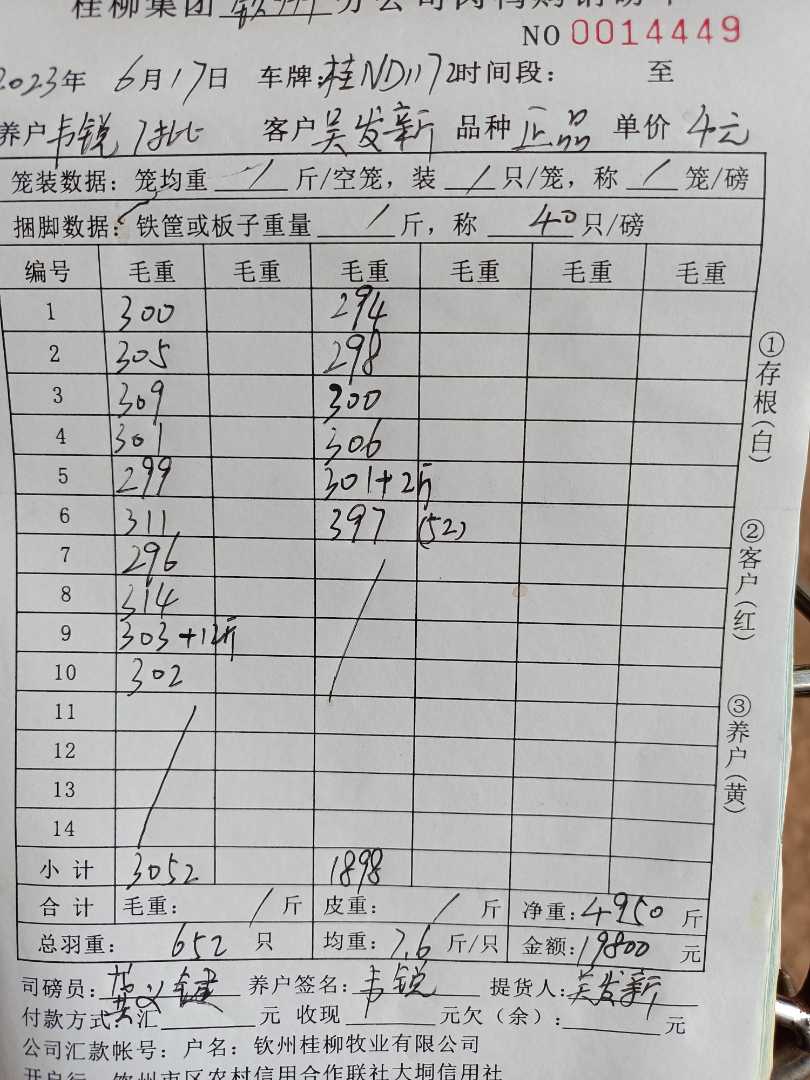 桂柳集团 钦州 分公司肉鸭购销磅
NO 0014449
2023年 6月17日 车牌:桂ND1172 时间段: 至
养户 韦锐 1批 客户 吴发新 品种 正品 单价 4元
笼装数据: 笼均重 / 斤/空笼, 装 / 只/笼, 称 / 笼/磅
捆脚数据: 铁筐或板子重量 / 斤, 称 40 只/磅
编号 毛重 毛重 毛重 毛重 毛重 毛重
1 300 294
2 305 298
3 309 300
4 301 306
5 299 301+2斤
6 311 397 (52)
7 296
8 314
9 303+12斤
10 302
11
12
13
14
小计 3052 1898
合计 毛重: / 斤 皮重: / 斤 净重: 4950 斤
总羽重: 652 只 均重: 7.6 斤/只 金额: 19800 元
司磅员: 黄义键 养户签名: 韦锐 提货人: 吴发新
付款方式: 汇 元 收现 元欠(余): 元
公司汇款帐号: 户名: 钦州桂柳牧业有限公司
开户行: 钦州市区农村信用合作联社大垌信用社
①存根(白)
②客户(红)
③养户(黄)